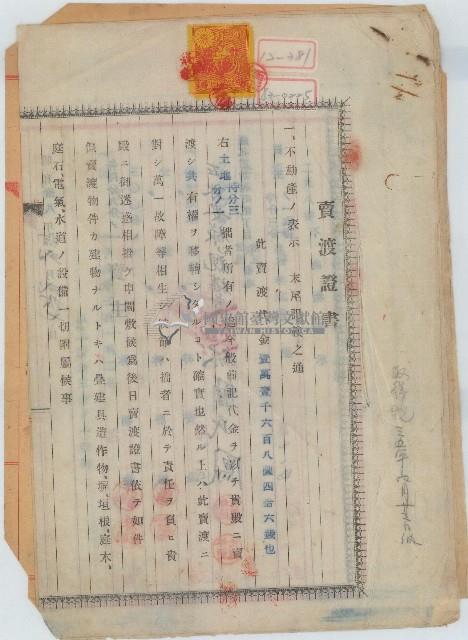 賣渡證書
一、不動産ノ表示 末尾記載之通
此賣渡代金壹萬壹千六百八圓四拾六錢也
右土地持分三分ノ一拙者所有ノ處今般前記代金ヲ以テ貴殿ニ賣
渡シ共有權ヲ移轉シタルコト確實也然ル上ハ此賣渡ニ
對シ萬一故障等相生シ候節ハ拙者ニ於テ責任ヲ負ヒ貴
殿ニ御迷惑相掛ケ申間敷候爲後日賣渡證書依テ如件
但賣渡物件カ建物ナルトキハ疊建具造作物、塀、垣根、庭木、
庭石電氣、水道ノ設備一切附屬候事
12-381
國史館臺灣文獻館
TAIWAN HISTORICA